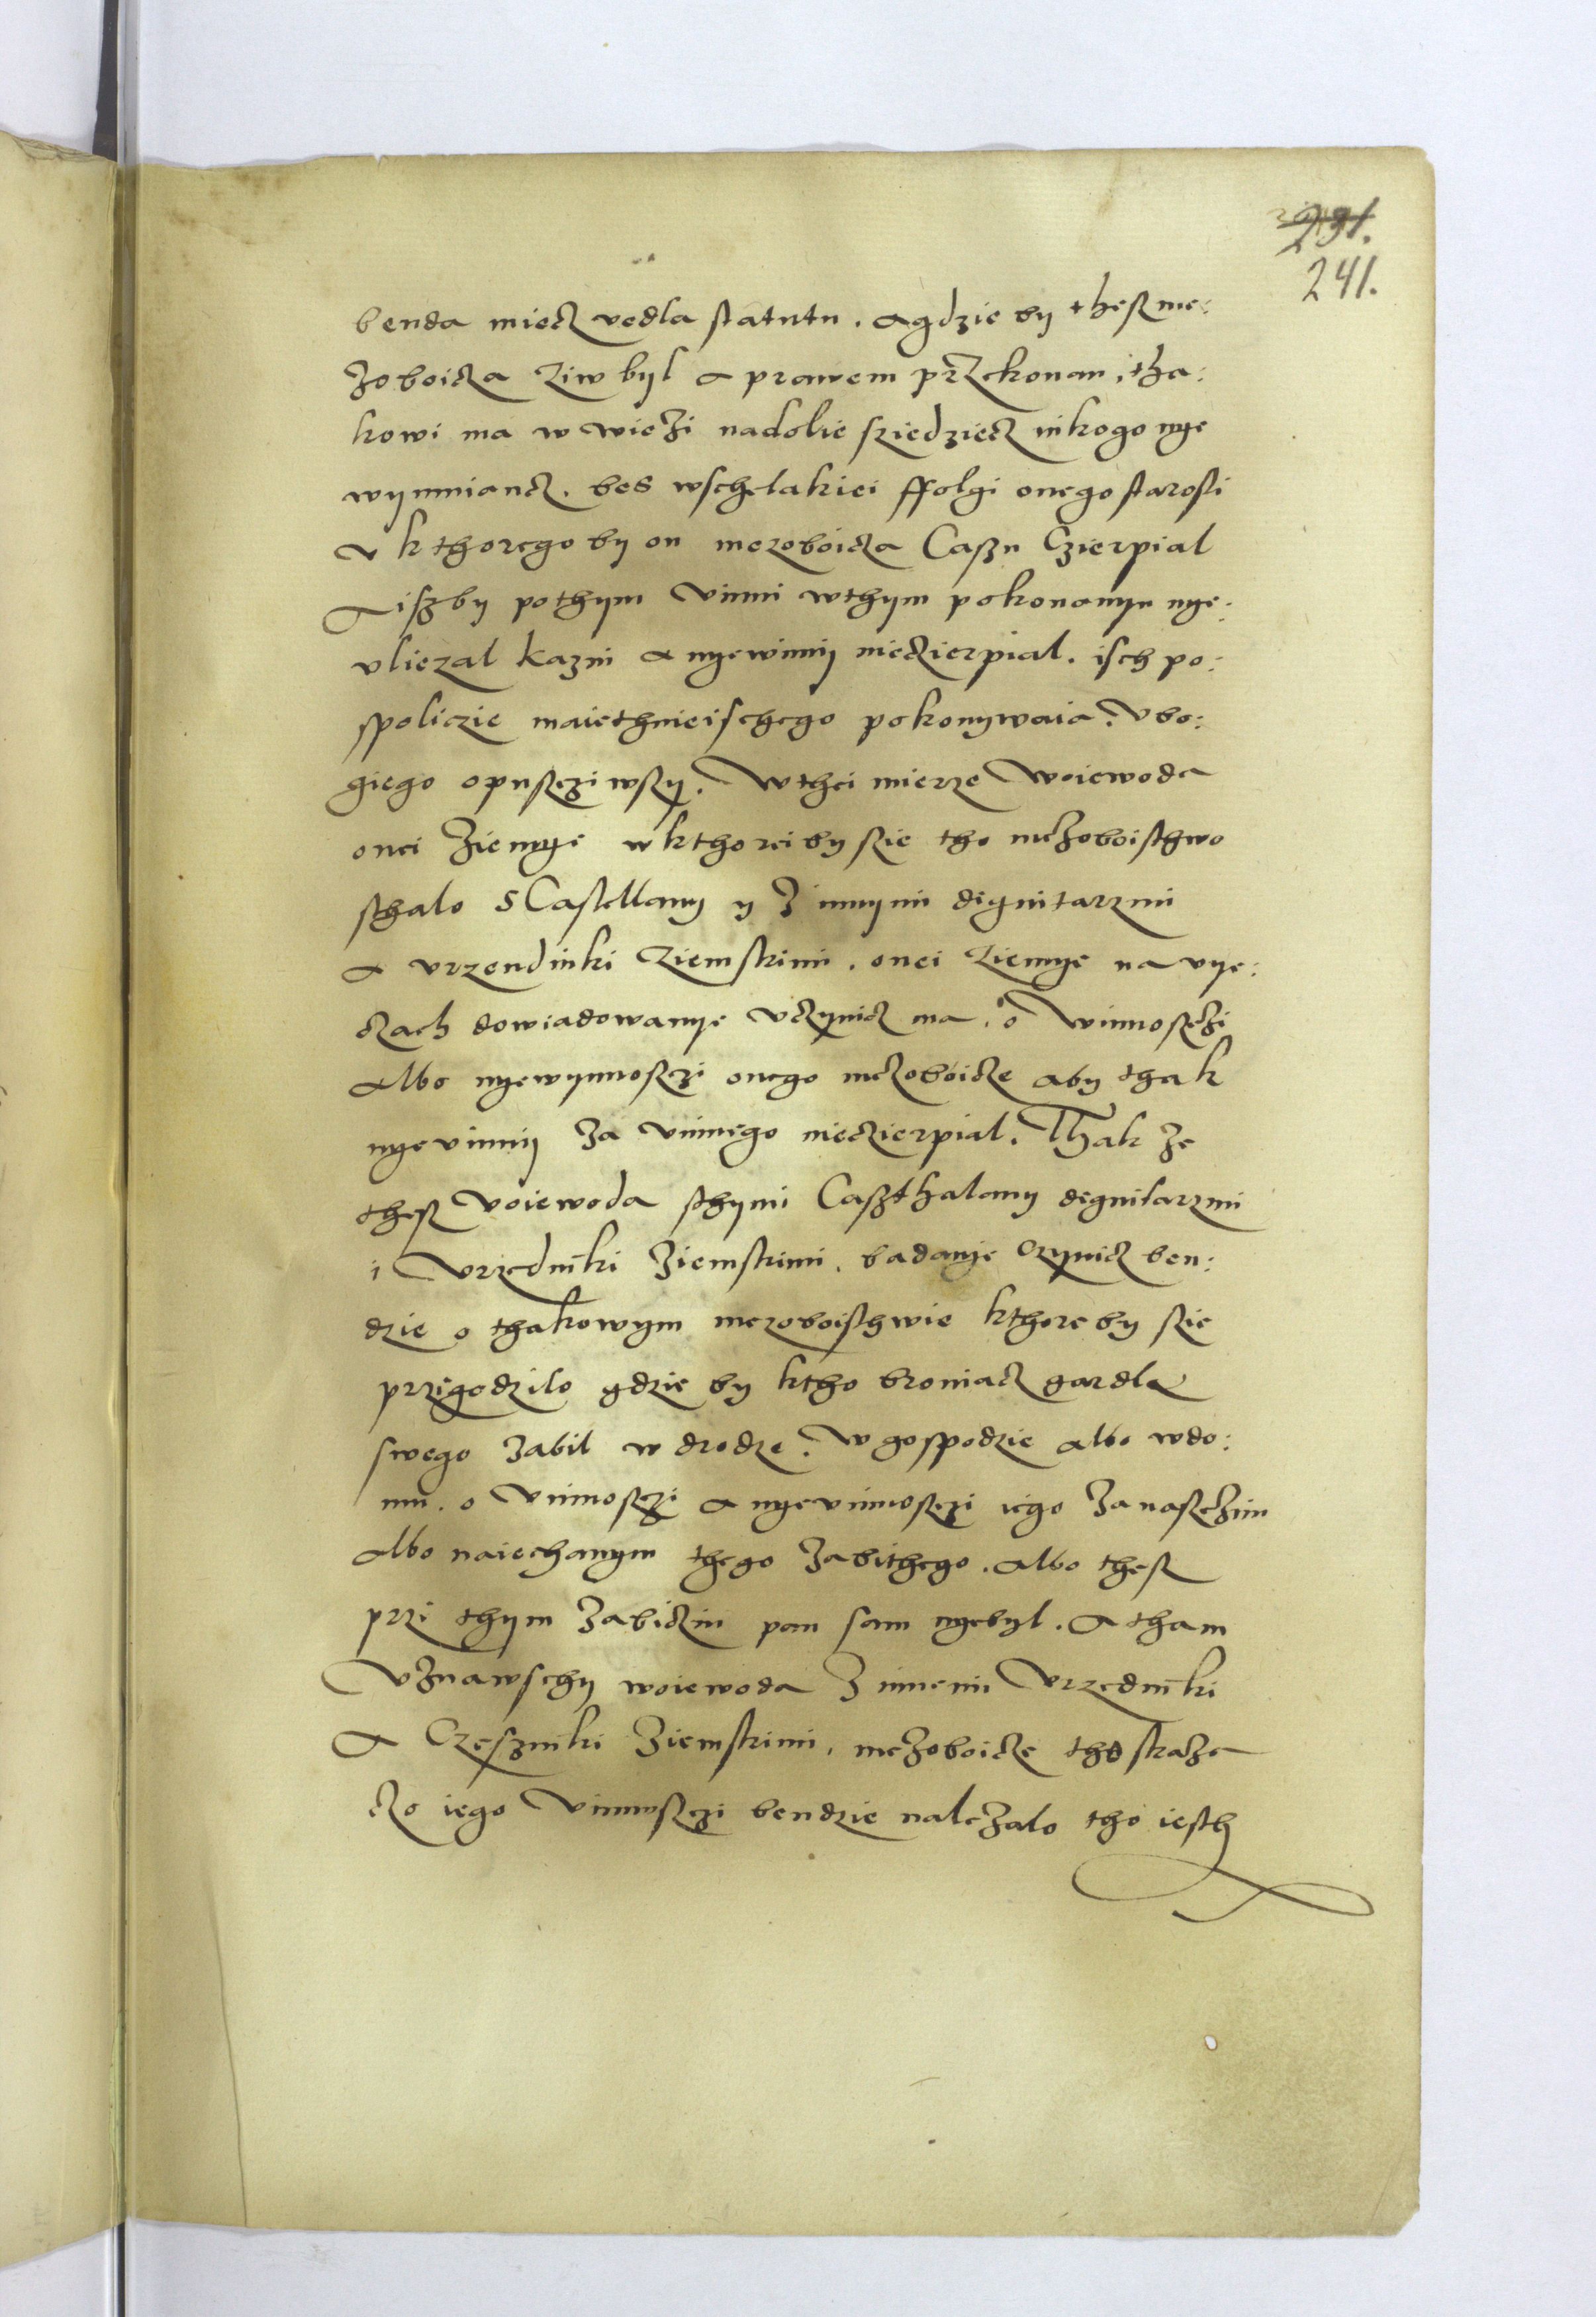 291.
241.
benda miecz vedla statutu. a gdzie by thesz me:
zoboicza ziw byl a prawem przekonan, tha:
kowi ma w wiezi nadolie sziedziecz nikogo nye
wymniancz. bes wschelakiei ffolgi onego starosti
v kthorego by on mezoboicza Caszn Czierpial
A iszby pothym vinni wthym pokonanyu nye:
vliezal kazni a nyewinny nieczierpial. isch po:
spoliczie maiethnieischego pokonywaia. vbo:
giego opusczi wszy. W thei mierze Woiewoda
onei Ziemye w kthorei by szie tho mezoboisthwo
sthalo s Castellany y z innymi dignitarzmi
a vrzendniki Ziemskimi. onei ziemye na vye:
czach dowiadowanye vczynicz ma. o winnosczi
Albo nyewynnosczi onego mezoboicze aby thak
nyevinny za vinnego nieczierpial. Thak ze
thesz voiewoda sthymi Caszthalany dignitarzmi
i Vrzedniki Ziemskimi. badanye Czynicz ben:
dzie o thakowym mezoboisthwie kthore by szie
przigodzilo gdzie by ktho broniacz gardla
swego zabil w drodze. w gospodzie albo wdo:
mu. o vinnosczi a nyevinnosczi iego za nasczim
Albo naiechanym thego zabithego. albo thesz
przi thym zabiczin pan sam nyebyl. A tham
Vznawschy woiewoda z innemi Vrzedniki
A Czeszniki Ziemskimi. mezoboicze tho skaze
czo iego vinnosczi bendzie nalezalo tho iesth